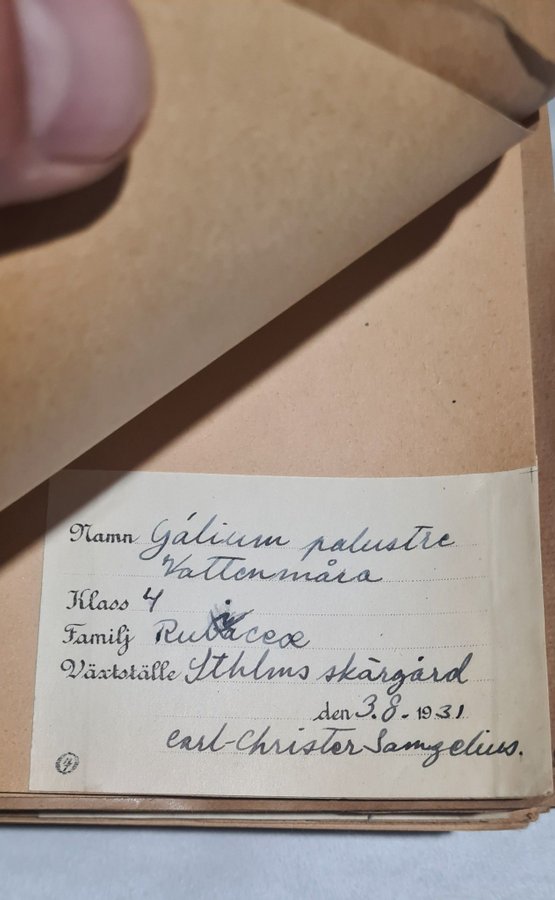 Namn Gálium palustre
Vattenmåra
Klass 4
Familj Rubiaceæ
Växtställe Sthlms skärgård
den 3.8. 1931
Carl-Christer Samzelius.
4